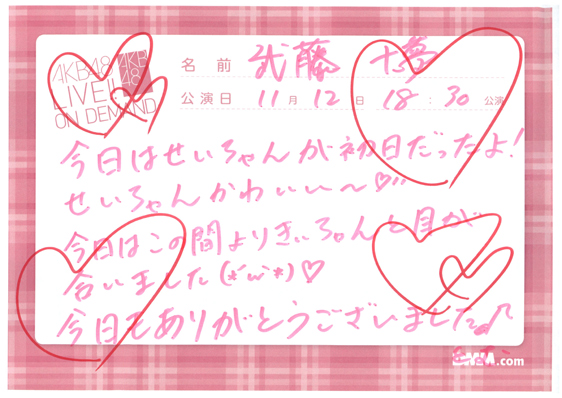 AKB48
LIVE!!
ON DEMAND
AKB
48
名前 武藤 十夢
公演日 11月 12日 18:30 公演
今日はせいちゃんが初日だったよ!
せいちゃんかわいぃ〜♡
今日はこの間よりきぃちゃんと目が
合いました(*´ω`*)♡
今日もありがとうございました♪
DMM.com